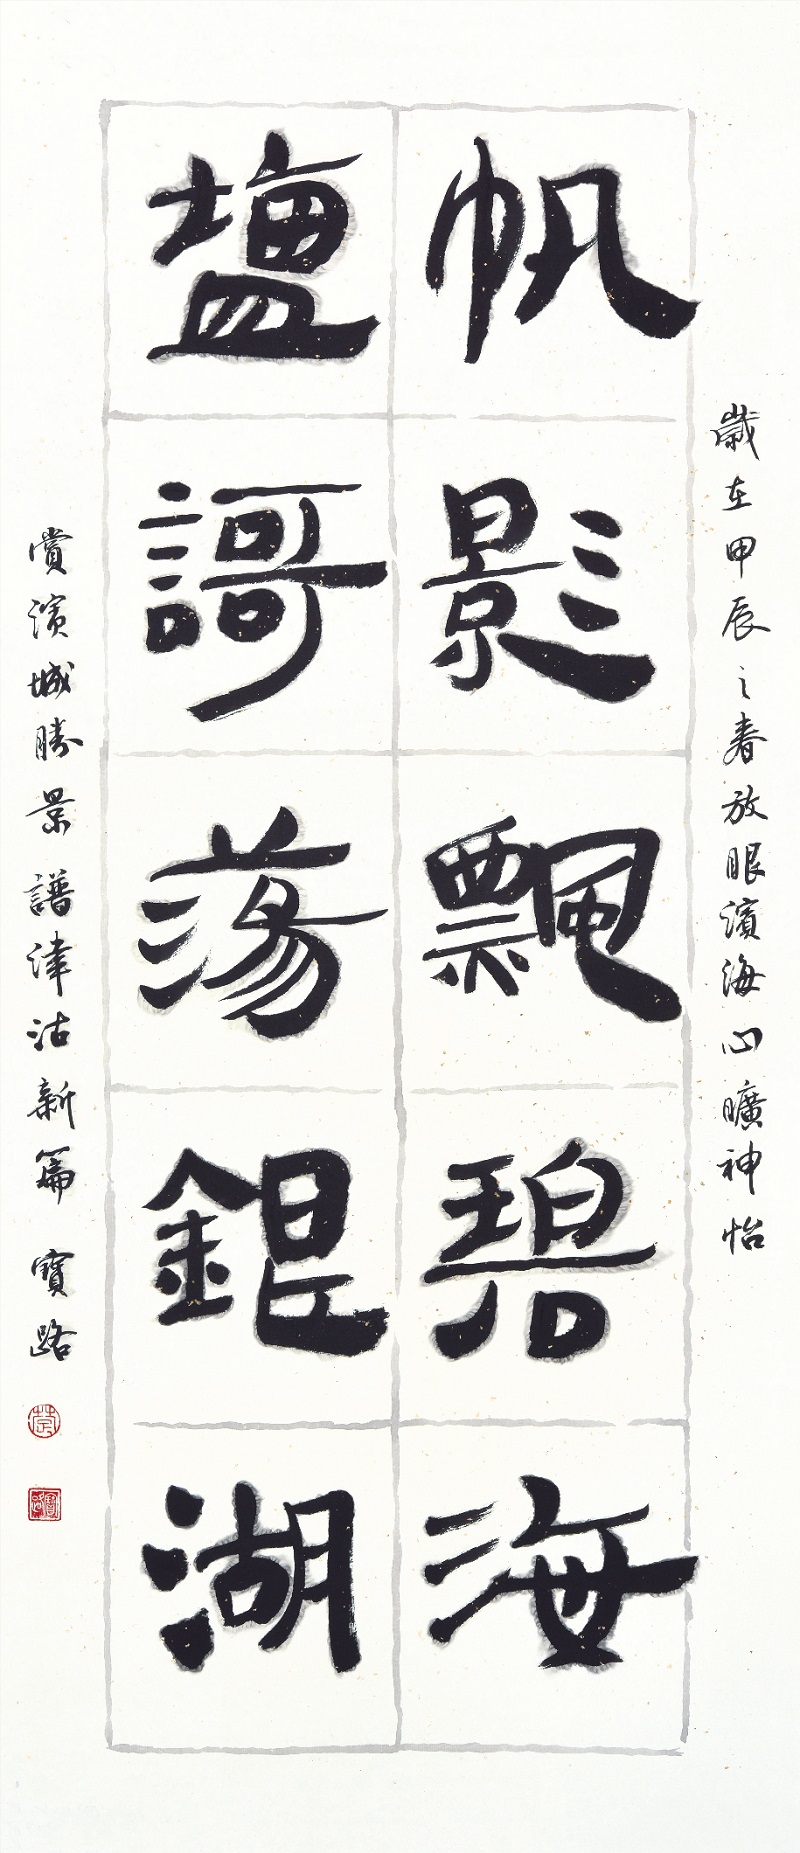 歲在甲辰之春放眼濱海心曠神怡
帆影飄碧海
塩謌蕩銀湖
賞濱城勝景譜津沽新篇 寶路